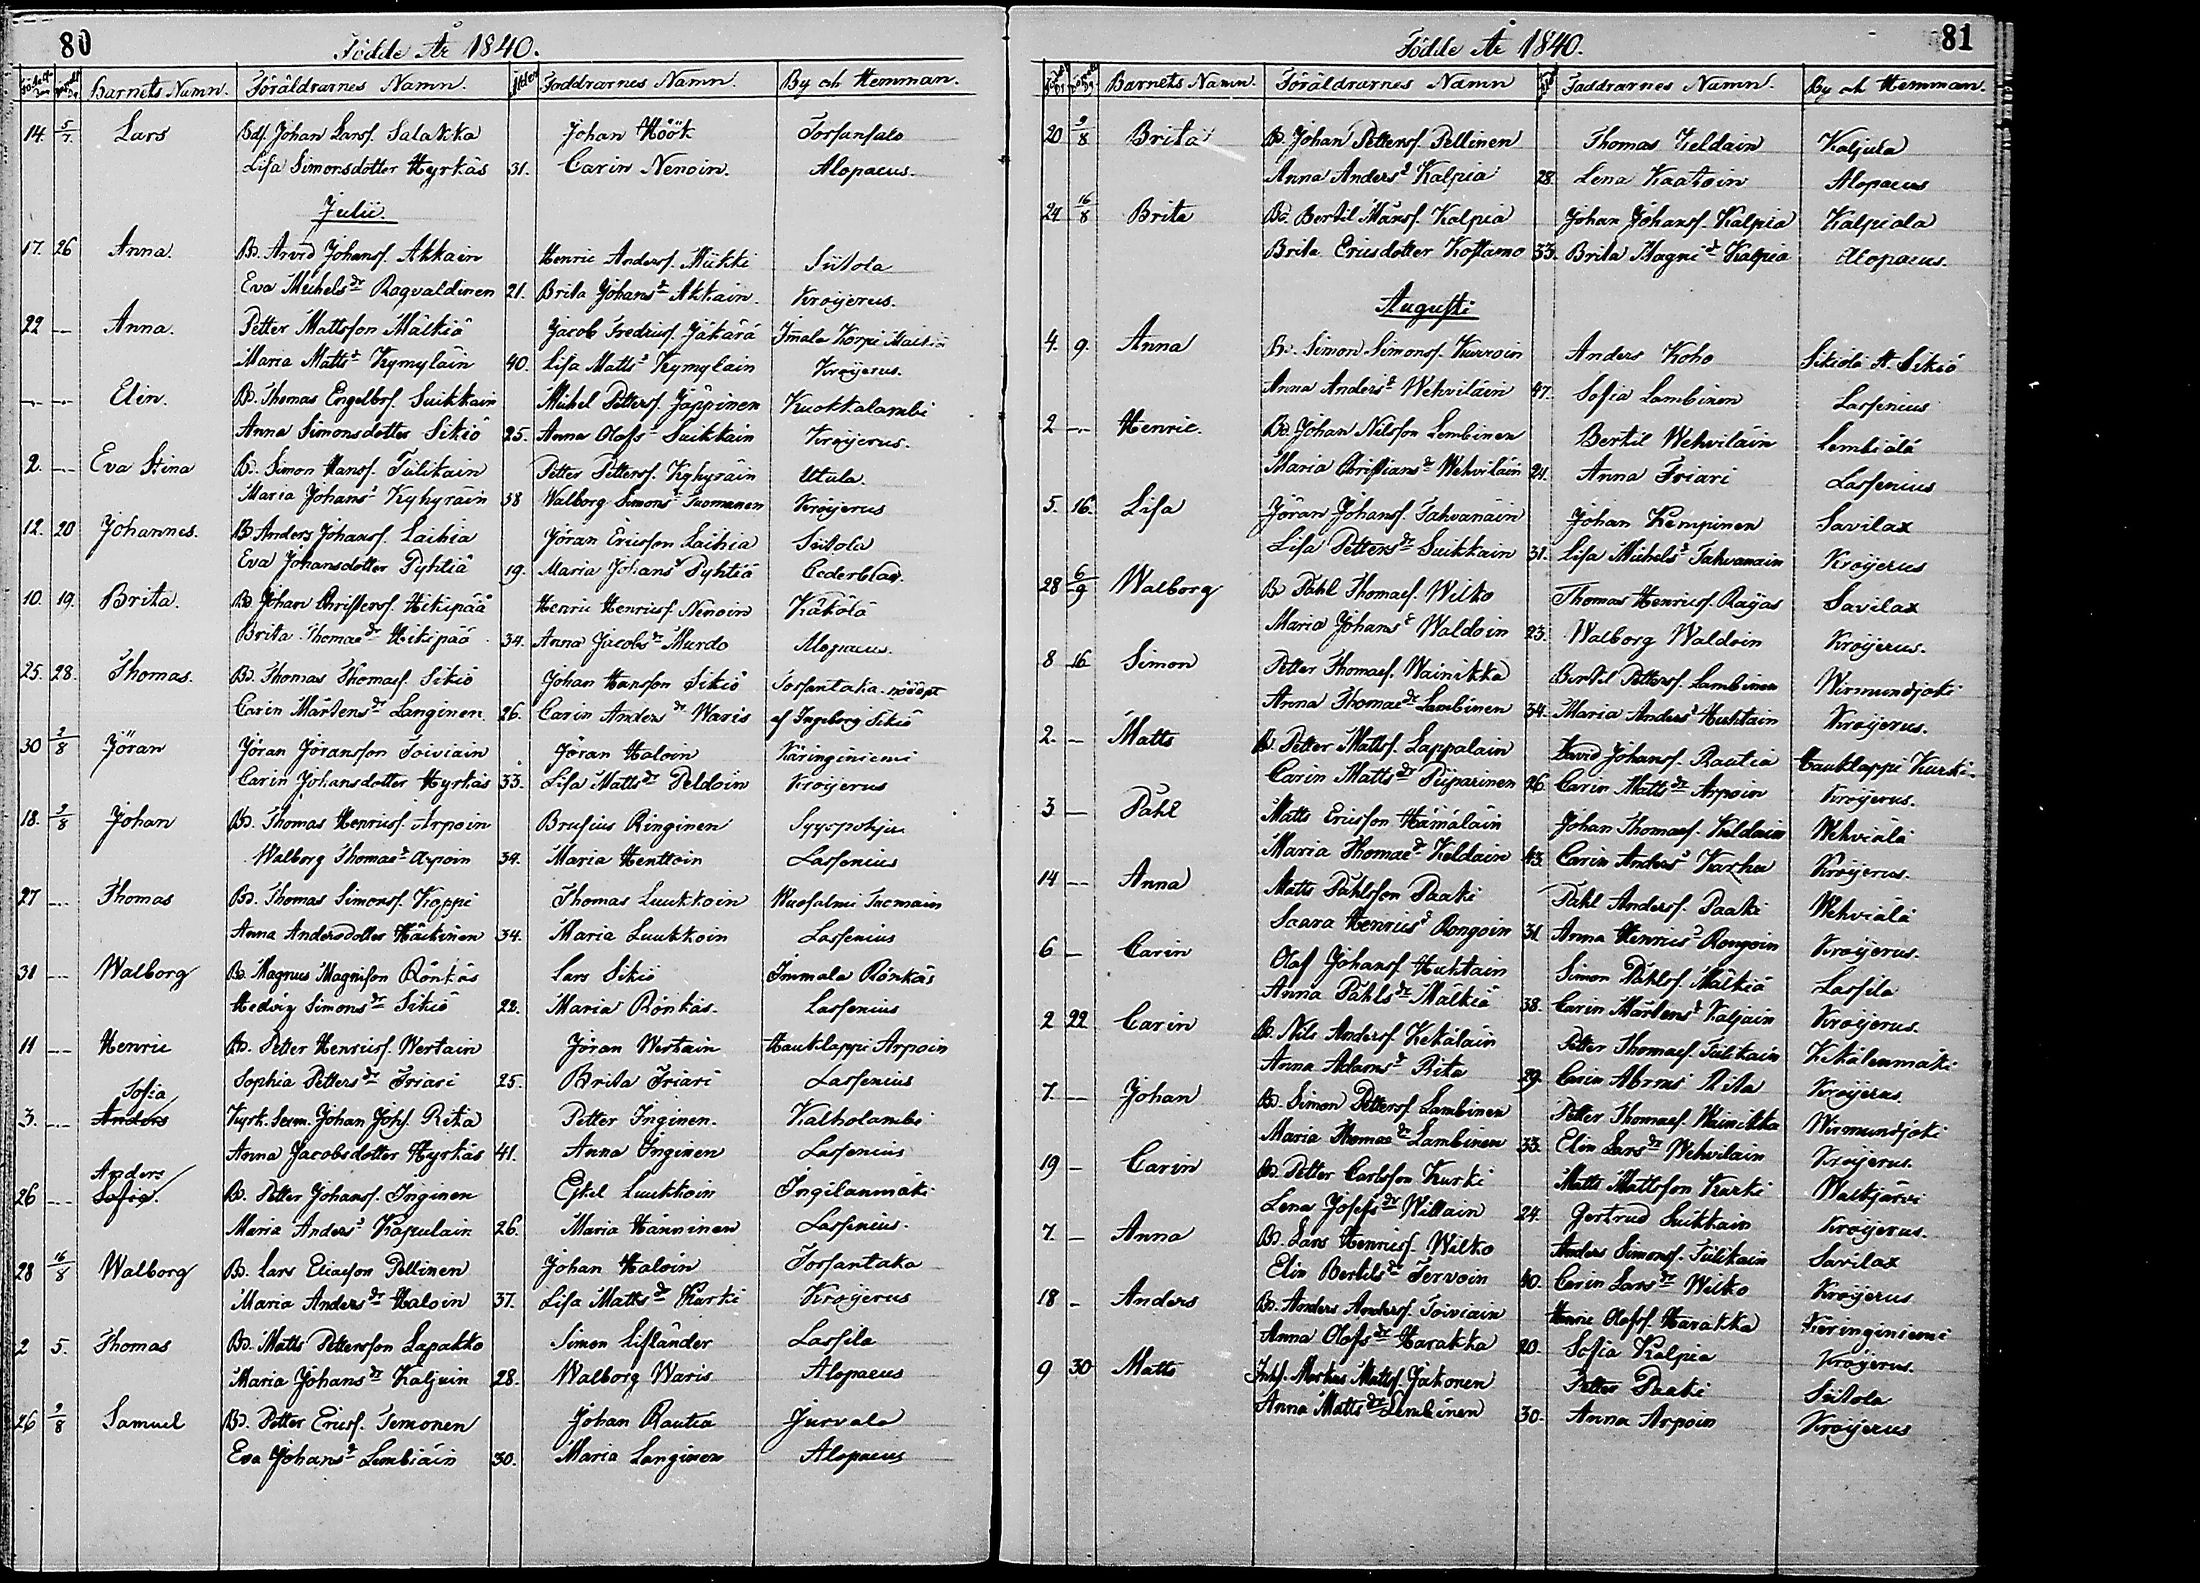 80
Födde År 1840.
Barnets Namn. Föräldrarnes Namn. Ålder Faddrarnes Namn. By och Hemman.
14. 5/7. Lars Bdf Johan Larsf. Salakka Johan Höök Torsansalo
Lisa Simonsdotter Hyrkäs 31. Carin Nenoin. Alopaeus.
Julii.
17. 26 Anna. Bd. Arvid Johansf. Akkain Henric Andersf. Mikki Siitola
Eva Michels dr Ragvaldinen 21. Brita Johans dr Akkain. Kröijerus.
22 — Anna. Petter Mattsson Mälkiä Jacob Fredricsf. Jäkärä Imala Korpi Mälkiä
Maria Matts dr Kymyläin 40. Lisa Matts dr Kymyläin Kröijerus.
— — Elin. Bd. Thomas Engelbrf. Suikkain Michel Pettersf. Jäppinen Kuokkalambi
Anna Simonsdotter Sikiö 25. Anna Olofs dr Suikkain Kröijerus.
2. — Eva Stina Bd. Simon Hansf. Tulikain Petter Pettersf. Kyhyräin Utula.
Maria Johans dr Kyhyräin 38 Walborg Simons dr Tuomanen Kröijerus
12. 20 Johannes. Bd Anders Johansf. Laihia Jöran Ericsson Laihia Siitola
Eva Johansdotter Pyhtiä 19. Maria Johans dr Pyhtiä Cederblad.
10. 19. Brita. Bd Johan Christersf. Hikipää Henric Henricsf. Nenoin Käkölä
Brita Thomae dr Hikipää 34. Anna Jacobs dr Murdo Alopaeus.
25. 28. Thomas. Bd. Thomas Thomasf. Sikiö Johan Hansson Sikiö Torsantaka nöödöpt
Carin Mårtens dr Langinen. 26. Carin Anders dr Waris af Ingeborg Sikiö
30 2/8 Jöran Jöran Jöransson Toiviain Jöran Haloin Käringiniemi
Carin Johansdotter Hyrkäs 33. Lisa Matts dr Peldoin Kröijerus
18. 2/8 Johan Bd. Thomas Henricsf. Arpoin Brusius Ringinen Syyspohja
Walborg Thomae dr Arpoin 34. Maria Henttoin Lassenius
27 — Thomas Bd. Thomas Simonsf. Koppi Thomas Luukkoin Wuosalmi Tuomain
Anna Andersdotter Häikinen 34. Maria Luukkoin Lassenius
31 — Walborg Bd. Magnus Magnisson Rönkäs Lars Sikiö Immala Rönkäs
Hedvig Simons dr Sikiö 22. Maria Rönkäs. Lassenius
11 — Henric Bd. Petter Henricsf. Wertain Jöran Wertain Hauklappi Arpoin
Sophia Petters dr Friari 25. Brita Friari Lassenius
Sofia
3. — Anders Kyrk. Sexm. Johan Johsf. Rita Petter Inginen. Kalholambi
Anna Jacobsdotter Hyrkäs 41. Anna Inginen Lassenius
Anders
26 — Sofia. Bd. Petter Johansf. Inginen Eskel Luukkoin Ingilänmäki
Maria Anders dr Kapulain 26. Maria Hänninen Lassenius.
28 16/8 Walborg Bd. Lars Eliasson Pellinen Johan Haloin Torsantaka
Maria Anders dr Haloin 37. Lisa Matts dr Kurki Kröijerus
2 5. Thomas Bd. Matts Pettersson Lapakko Simon Lifländer Lassila
Maria Johans dr Kaljuin 28. Walborg Waris Alopaeus
26 2/8 Samuel Bd. Petter Ericsf. Temonen Johan Rautia Jurvala
Eva Johans dr Lembiäin 30. Maria Langinen Alopaeus
81
Födde År 1840.
Barnets Namn. Föräldrarnes Namn Faddrarnes Namn. By och Hemman.
20 2/8 Brita Bd. Johan Pettersf. Pellinen Thomas Keldain Kaljula
Anna Anders dr Kalpia 28. Lena Kaatoin Alopaeus
24 16/8 Brita Bd. Bertil Månsf. Kalpia Johan Johansf. Kalpia Kalpiala
Brita Ericsdotter Kostamo 33. Brita Magni dr Kalpia Alopaeus.
Augusti
4. 9. Anna Bd. Simon Simonsf. Kurvoin Anders Koho Sikiölä A. Sikiö
Anna Anders dr Wehviläin 47. Sofia Lambinen Lassenius
2 — Henric. Bd. Johan Nilsson Lembinen Bertil Wehviläin Lembiälä
Maria Christians dr Wehviläin 24. Anna Friari Lassenius
5. 16. Lisa Jöran Johansf. Tahvanain Johan Kempinen Savilax
Lisa Petters dr Suikkain 31. Lisa Michels dr Tahvanain Kröijerus
28 6/9 Walborg Bd Påhl Thomaef. Wilko Thomas Henricsf. Rajas Savilax
Maria Johans dr Waldoin 23. Walborg Waldoin Kröijerus.
8 16 Simon Petter Thomaef. Wainikka Bertil Pettersf. Lambinen Wirmundjoki
Anna Thomae dr Lambinen 34. Maria Anders dr Huhtain Kröijerus.
2. — Matts Bd. Petter Mattsf. Lappalain David Johansf. Rautia Hauklappi Kurki
Carin Matts dr Piiparinen 26. Carin Matts dr Arpoin Kröijerus.
3 — Påhl Matts Ericsson Hämäläin Johan Thomaef. Keldain Wehviälä
Maria Thomae dr Keldain 43. Carin Anders dr Karhu Kröijerus.
14 — Anna Matts Påhlsson Paaki Påhl Andersf. Paaki Wehviälä
Saara Henrics dr Rongoin 31. Anna Henrics dr Rongoin Kröijerus.
6 — Carin Olof Johansf. Huhtain Simon Påhlsf. Mälkiä Lassila
Anna Påhls dr Mälkiä 38. Carin Mårtens dr Kaljuin Kröijerus.
2 22 Carin Bd. Nils Andersf. Kekäläin Petter Thomaef. Tulikain Kekälenmäki
Anna Adams dr Rita 29. Carin Abrms Rita Kröijerus.
7. — Johan Bd. Simon Pettersf. Lambinen Petter Thomaef. Wainikka Wirmundjoki
Maria Thomae dr Lambinen 33. Elin Lars dr Wehviläin Kröijerus.
19 — Carin Bd. Petter Carlsson Kurki Matts Mattsson Kurki Walkjärvi
Lena Josefs dr Willain 24. Gertrud Suikkain Kröijerus.
7. — Anna Bd. Lars Henricsf. Wilko Anders Simonsf. Tulikain Savilax
Elin Bertils dr Tervoin 40. Carin Lars dr Wilko Kröijerus
18 — Anders Bd. Anders Andersf. Toiviain Henric Olofsf. Harakka Keringiniemi
Anna Olofs dr Harakka 20. Sofia Kalpia Kröijerus.
9 30 Matts Inhf. Markus Mattsf. Jakonen Petter Paaki Siitola
Anna Matts dr Lembinen 30. Anna Arpoin Kröijerus